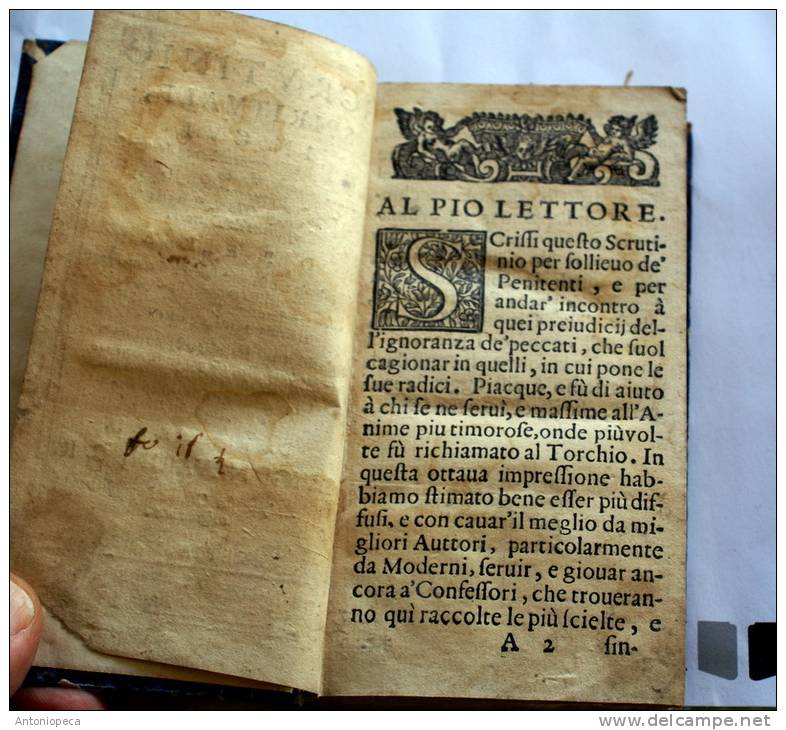 AL PIO LETTORE.
SCriſſi queſto Scruti-
nio per ſollieuo de'
Penitenti, e per
andar' incontro à
quei preiudicij del-
l'ignoranza de'peccati, che ſuol
cagionar in quelli, in cui pone le
ſue radici. Piacque, e fù di aiuto
à chi ſe ne ſeruì, e maſſime all'A-
nime piu timoroſe, onde piùvol-
te fù richiamato al Torchio. In
queſta ottaua impreſſione hab-
biamo ſtimato bene eſſer più dif-
fuſi, e con cauar'il meglio da mi-
gliori Auttori, particolarmente
da Moderni, ſeruir, e giouar an-
cora a'Confeſſori, che troueran-
no quì raccolte le più ſcielte, e
A 2 ſin-
Antoniopeca
www.delcampe.net